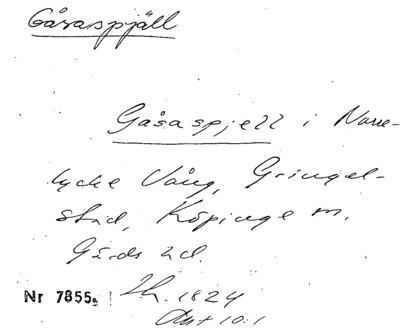 Gåsaspjäll
Gåsaspjell i Norre-
lycke Vång, Gringel-
stad, Köpinge m.
Gärds hd.
Nr 7855a Lh. 1824
Akt 10:1